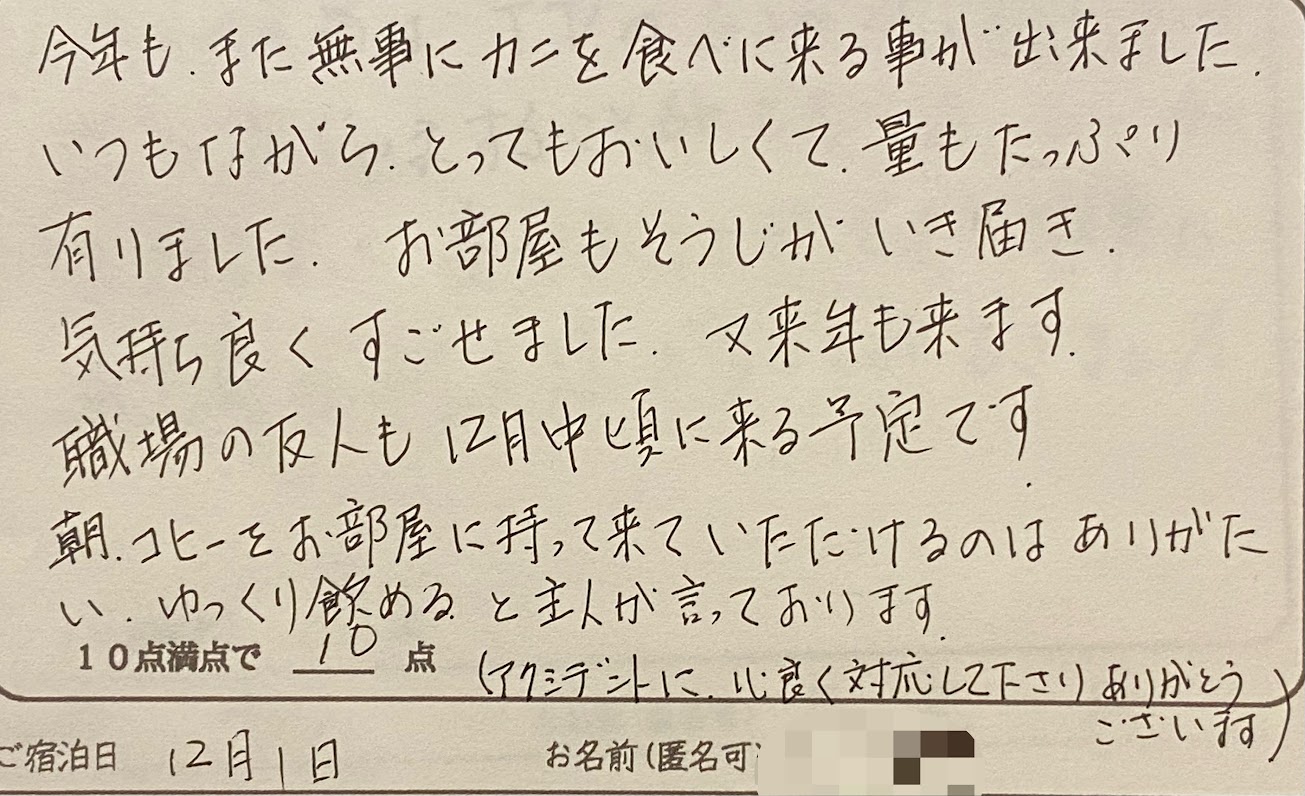 今年も、また無事にカニを食べに来る事が出来ました。
いつもながら、とってもおいしくて、量もたっぷり
有りました。 お部屋もそうじがいき届き、
気持ち良くすごせました。 又来年も来ます。
職場の友人も12月中頃に来る予定です。
朝、コヒーをお部屋に持って来ていただけるのはありがた
い、ゆっくり飲める。と主人が言っております。
10点満点で 10 点
(アクシデントに、心良く対応して下さりありがとう
ございます)
ご宿泊日 12月1日 お名前(匿名可